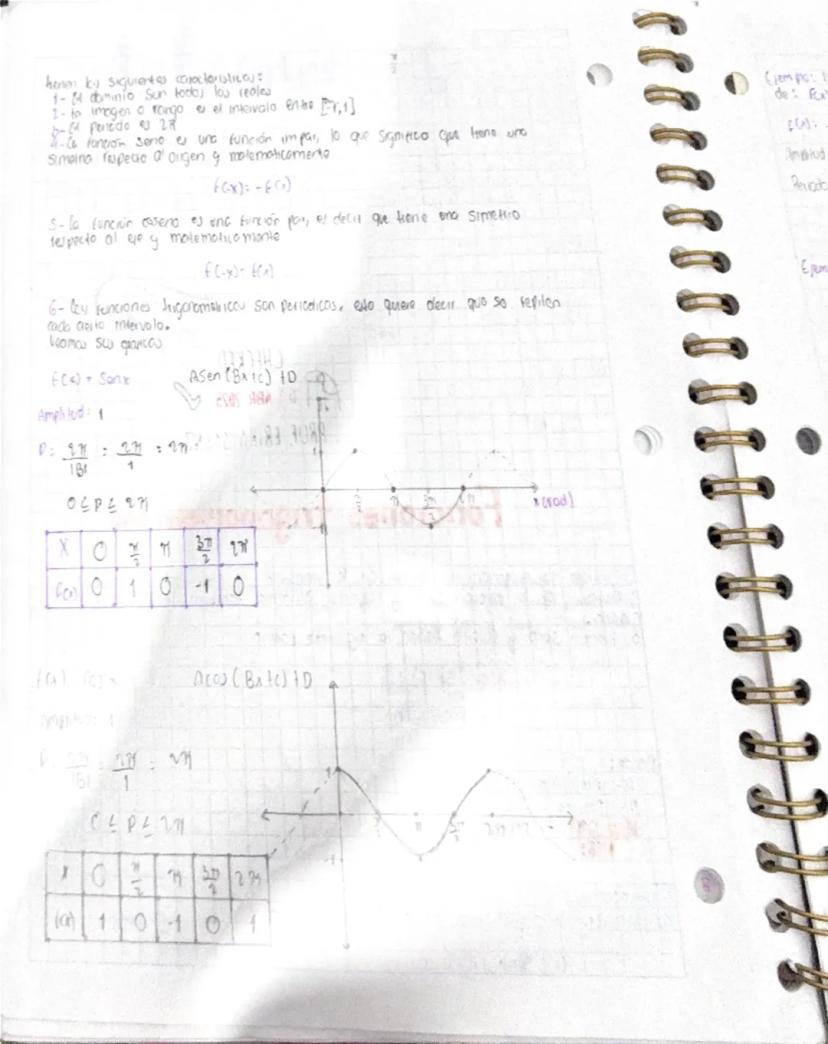 tienen las siguientes características:
1- El dominio son todos los reales
2- la imagen o rango es el intervalo entre [-1,1]
3- El periodo es 2π
4- La función seno es una función impar, lo que significa que tiene una
simetría respecto al origen y matemáticamente
f(-x)= -f(x)
5- la función coseno es una función par, es decir que tiene una simetría
respecto al eje y matemáticamente
f(-x)= f(x)
6- las funciones trigonométricas son periódicas, esto quiere decir que se repiten
cada cierto intervalo.
Veamos sus gráficas
f(x) = Senx ASen(Bx+c)+D
Amplitud: 1
P: 2π/|B| = 2π/1 = 2π
0 ≤ P ≤ 2π
x 0 π/2 π 3π/2 2π
f(x) 0 1 0 -1 0
1 π/2 π 3π/2 2π x(rad)
f(x) Cosx Acos(Bx+c)+D
Amplitud: 1
P: 2π/|B| = 2π/1 = 2π
0 ≤ P ≤ 2π
x 0 π/2 π 3π/2 2π
f(x) 1 0 -1 0 1
1 π/2 π 3π/2 2π
-1
Ejemplo:
de: f(x)
f(x):
Amplitud
Periodo
Ejem